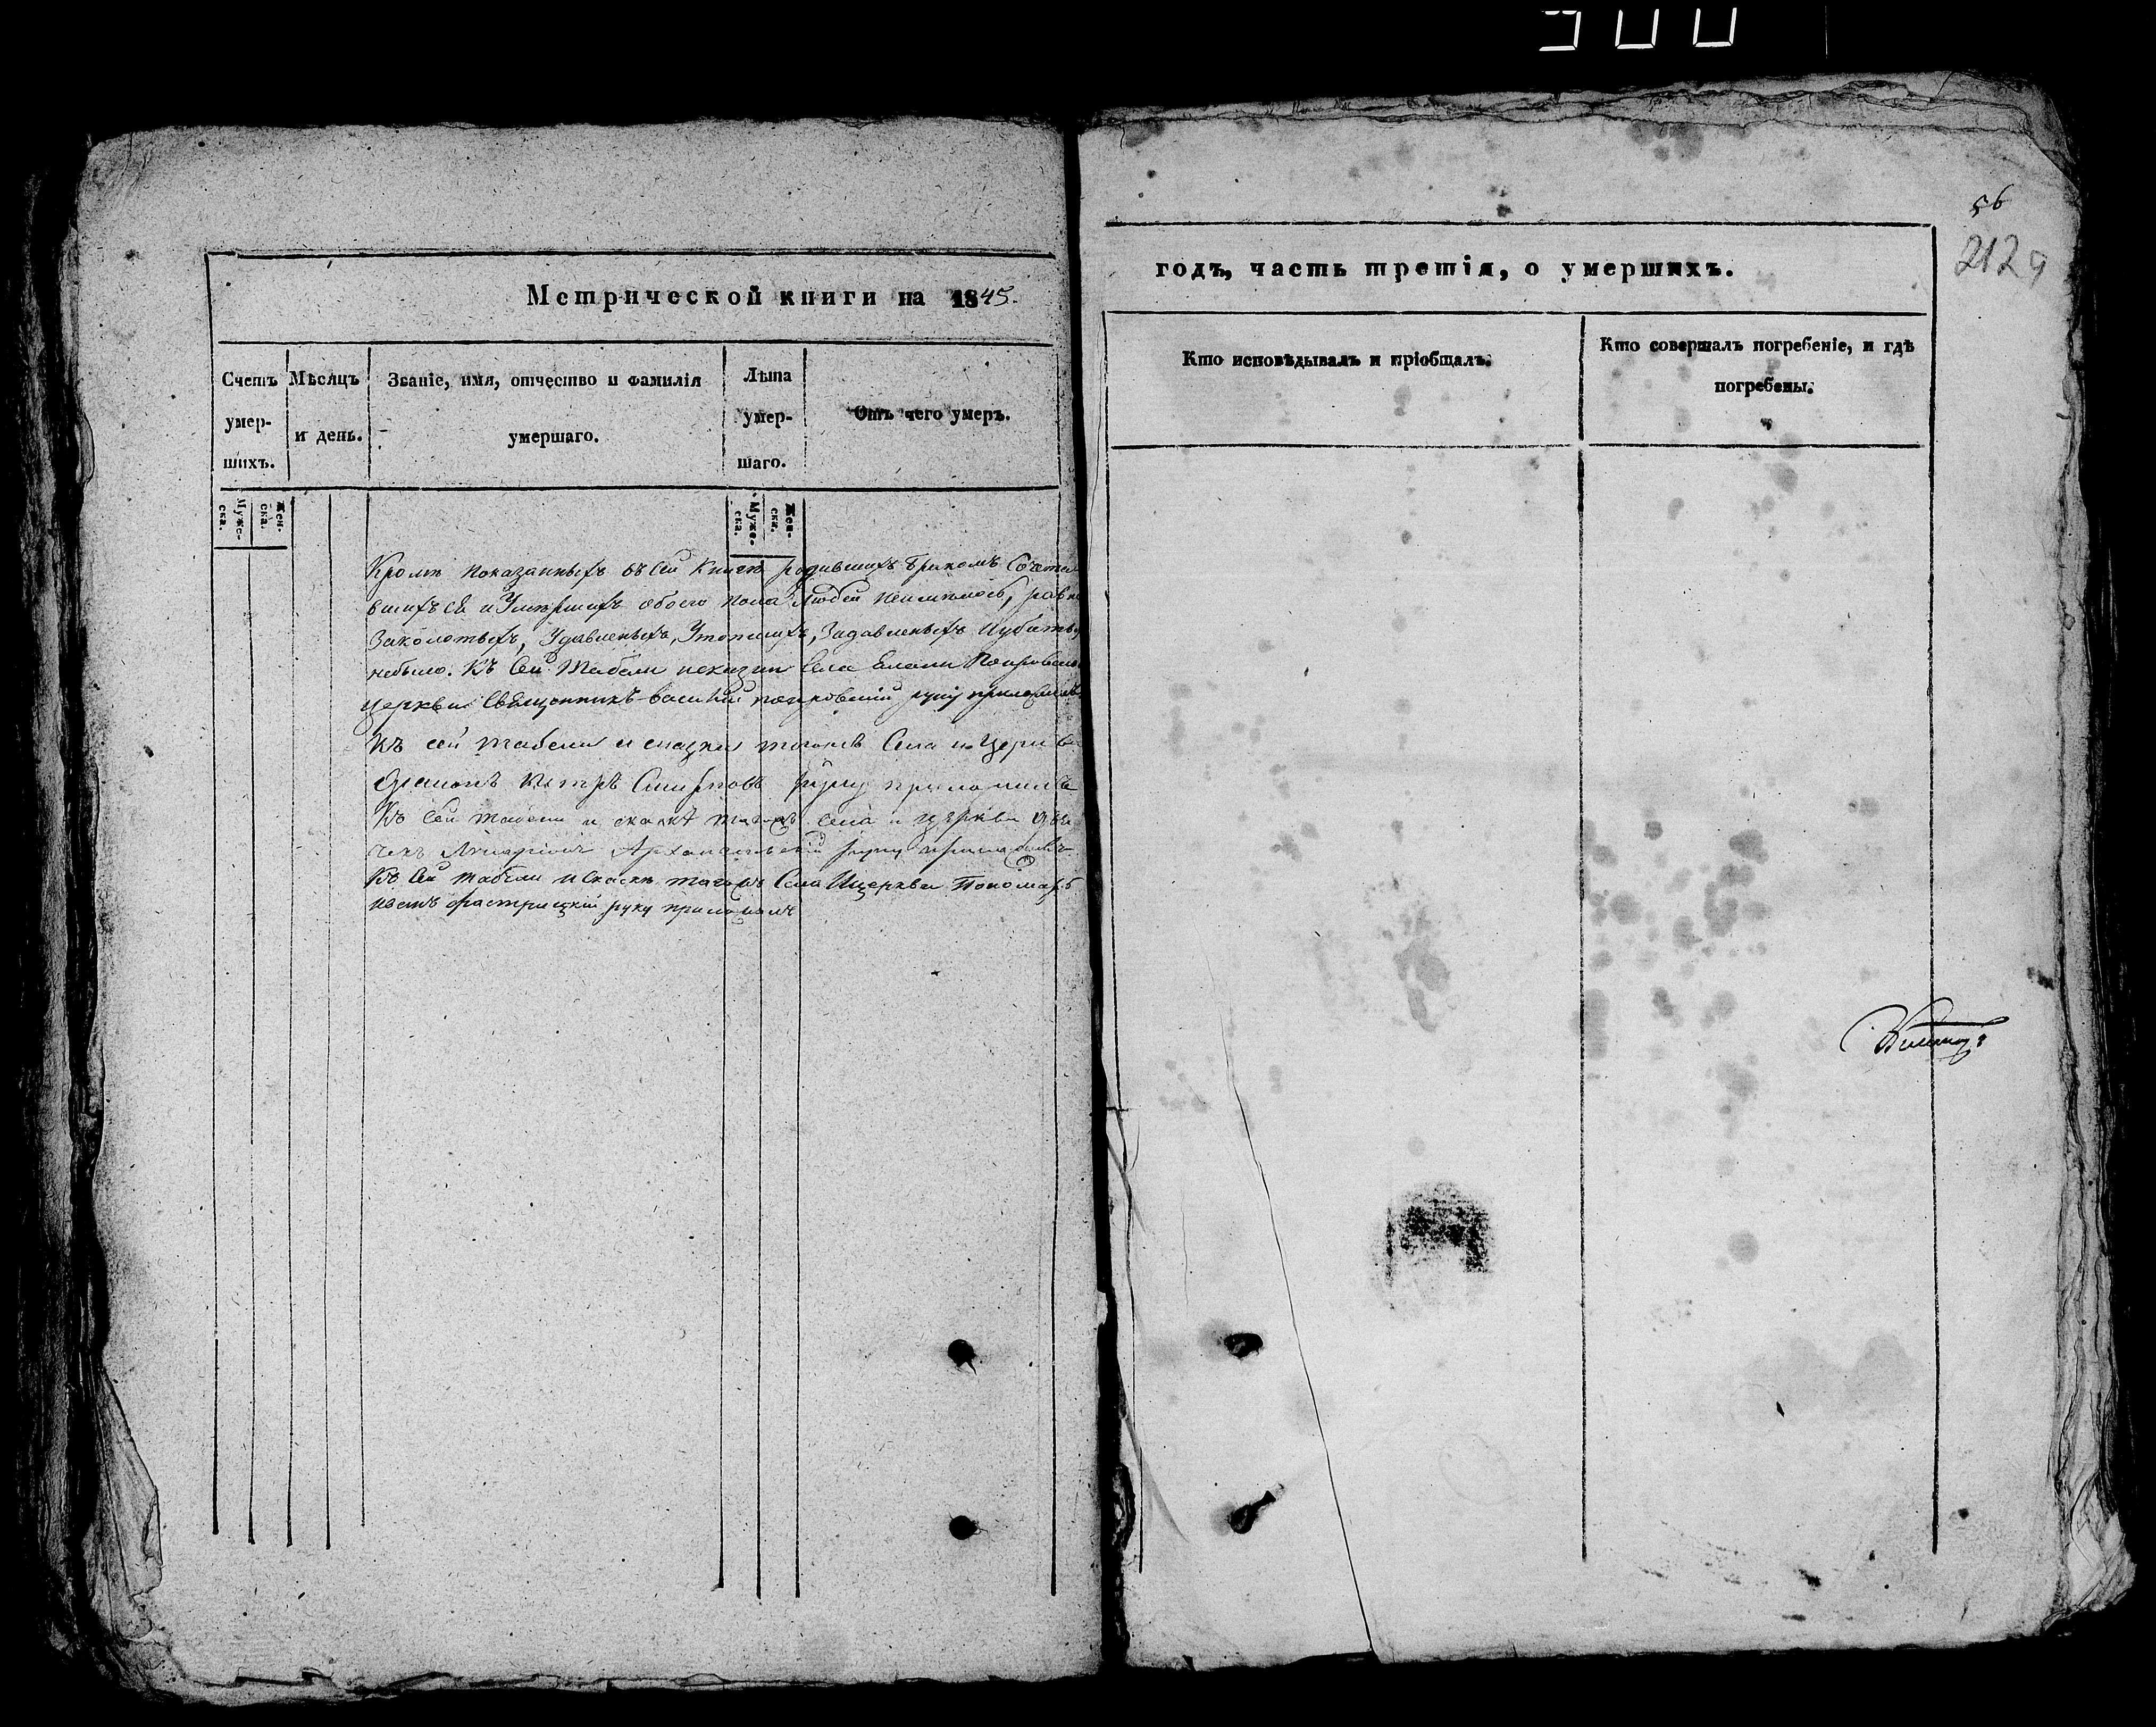 500
56
2129
Метрической книги на 1845.
годъ, часть третія, о умершихъ.
Счетъ умер-шихъ.
Мѣсяцъ и день.
Званіе, имя, отчество и фамилія умершаго.
Лѣта умер-шаго.
Отъ чего умеръ.
Кто исповѣдывалъ и пріобщалъ.
Кто совершалъ погребеніе, и гдѣ погребены.
Муже-ска.
Жен-ска.
Муже-ска.
Жен-ска.
Кромѣ показанныхъ въ сей Книгѣ родившихъ бракомъ Сочета
вшихъся и Умершихъ обоего пола людей неимѣлось, равно
Заколотыхъ, Удавленыхъ, Утопшихъ, Задавленыхъ Иубитыхъ
небыло. Къ Сей Табели Села Елани Покровской
церкви Священникъ Василий покровский руку приложилъ
Къ сей табели и сказки тогожъ Села и Церкви
Диаконъ Петръ Смирновъ руку приложилъ
Къ сей табели и сказкѣ тогожъ села и церкви дья
чекъ Архангельский руку приложилъ
Къ Сей табели и Скаскѣ тогожъ Села Ицеркви Пономарь
руку приложилъ